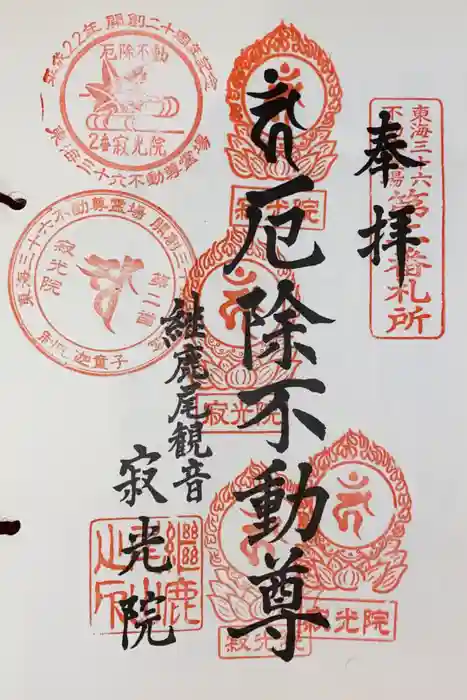 奉拝
東海三十六
不動
第二番札所
厄除不動尊
継鹿尾観音
寂光院
平成22年 開創二十周年記念
厄除不動
2番 寂光院
東海三十六不動尊霊場
東海三十六不動尊霊場 開創三
寂光院
第二番
制吒迦童子
寂光院
寂光院
寂光院
寂光院
繼鹿